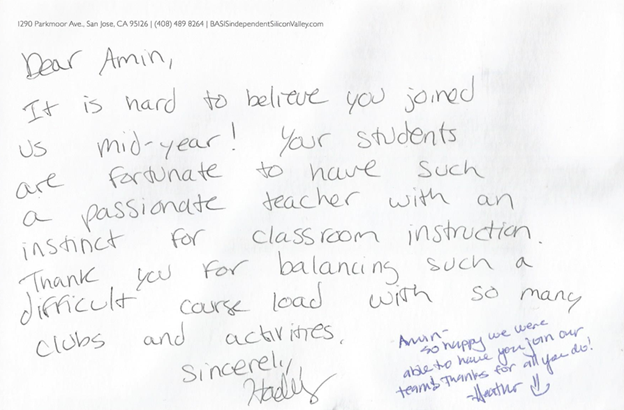 1290 Parkmoor Ave., San Jose, CA 95126 | (408) 489 8264 | BASISindependentSiliconValley.com
Dear Amin,
It is hard to believe you joined
us mid-year! Your students
are fortunate to have such
a passionate teacher with an
instinct for classroom instruction.
Thank you for balancing such a
difficult course load with so many
clubs and activities.
Sincerely,
Amin-
so happy we were
able to have you join our
team! Thanks for all you do!
-Heather